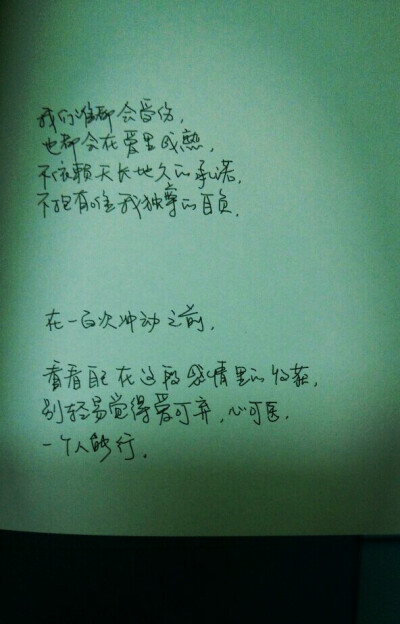 我们谁都会受伤，
也都会在爱里成熟，
不依赖天长地久的承诺，
不抱有唯我独尊的自负。
在一百次冲动之前，
看看自己在这段感情里的收获，
别轻易觉得爱可弃，心可医，
一个人能行。